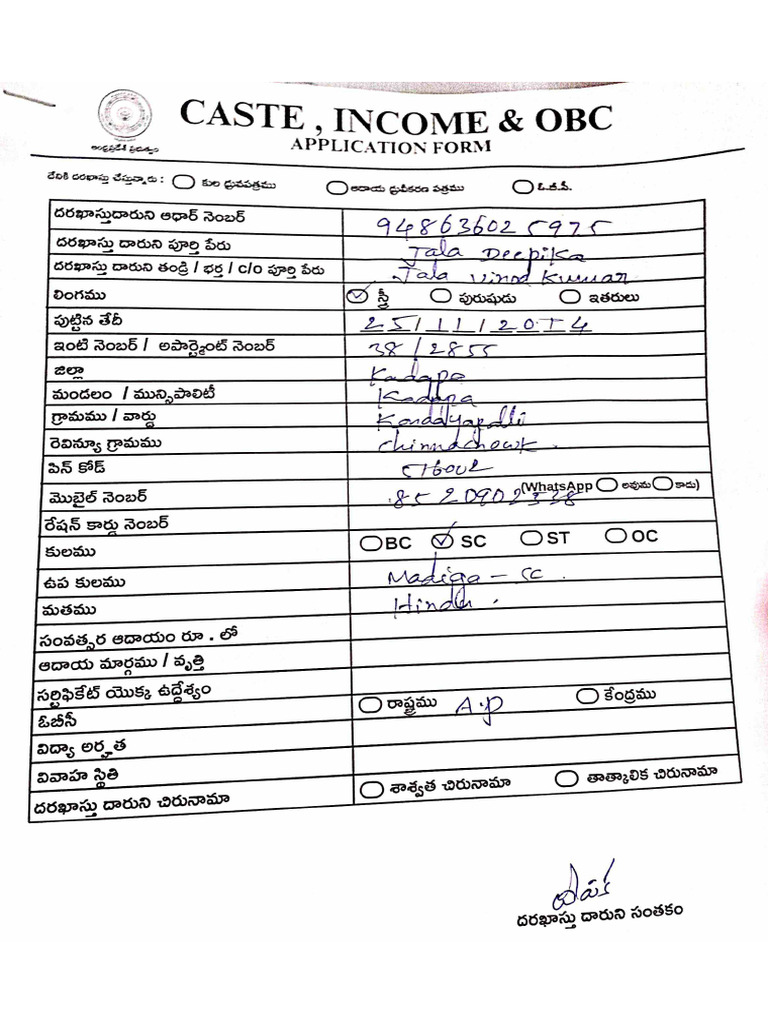 ఆంధ్రప్రదేశ్ ప్రభుత్వం
CASTE , INCOME & OBC
APPLICATION FORM
దేనికి దరఖాస్తు చేస్తున్నారు : కుల ధ్రువపత్రము ఆదాయ ధ్రువీకరణ పత్రము ఓ.బి.సి.
దరఖాస్తుదారుని ఆధార్ నెంబర్ 948636025975
దరఖాస్తు దారుని పూర్తి పేరు Jala Deepika
దరఖాస్తు దారుని తండ్రి / భర్త / c/o పూర్తి పేరు Jala Vinod Kumar
లింగము స్త్రీ పురుషుడు ఇతరులు
పుట్టిన తేదీ 25/11/2014
ఇంటి నెంబర్ / అపార్ట్మెంట్ నెంబర్ 38/2855
జిల్లా Kadapa
మండలం / మున్సిపాలిటీ Kadapa
గ్రామము / వార్డు
రెవిన్యూ గ్రామము chinnachowk
పిన్ కోడ్ 516002
మొబైల్ నెంబర్ 8520902338 (WhatsApp అవును కాదు)
రేషన్ కార్డు నెంబర్
కులము BC SC ST OC
ఉప కులము Madiga - SC .
మతము Hindu .
సంవత్సర ఆదాయం రూ . లో
ఆదాయ మార్గము / వృత్తి
సర్టిఫికేట్ యొక్క ఉద్దేశ్యం
ఓబీసీ రాష్ట్రము A.P కేంద్రము
విద్యా అర్హత
వివాహ స్థితి
దరఖాస్తు దారుని చిరునామా శాశ్వత చిరునామా తాత్కాలిక చిరునామా
దరఖాస్తు దారుని సంతకం